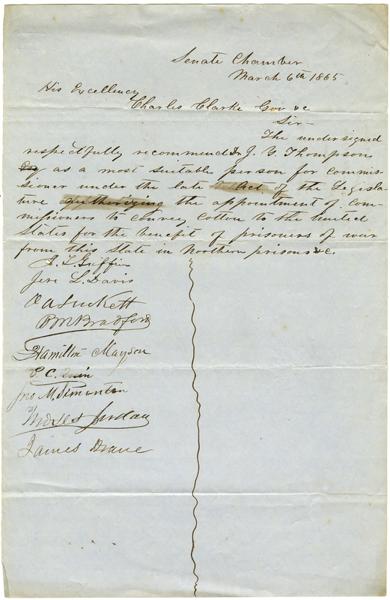 Senate Chamber
March 6th 1865
His Excellency
Charles Clarke Gov &c
Sir
The undersigned
respectfully recommend J. Y. Thompson
as a most suitable person for commis-
sioner under the late Act of the Legisla-
ture authorizing the appointment of com-
missioners to convey Cotton to the United
States for the benefit of prisoners of war
from this State in Northern prisons &c.
Griffin
Jere L. Davis
O A Luckett
Bradford
Hamilton Mayson
E C.
Jno M Simonton
Moses Jordan
James Drane